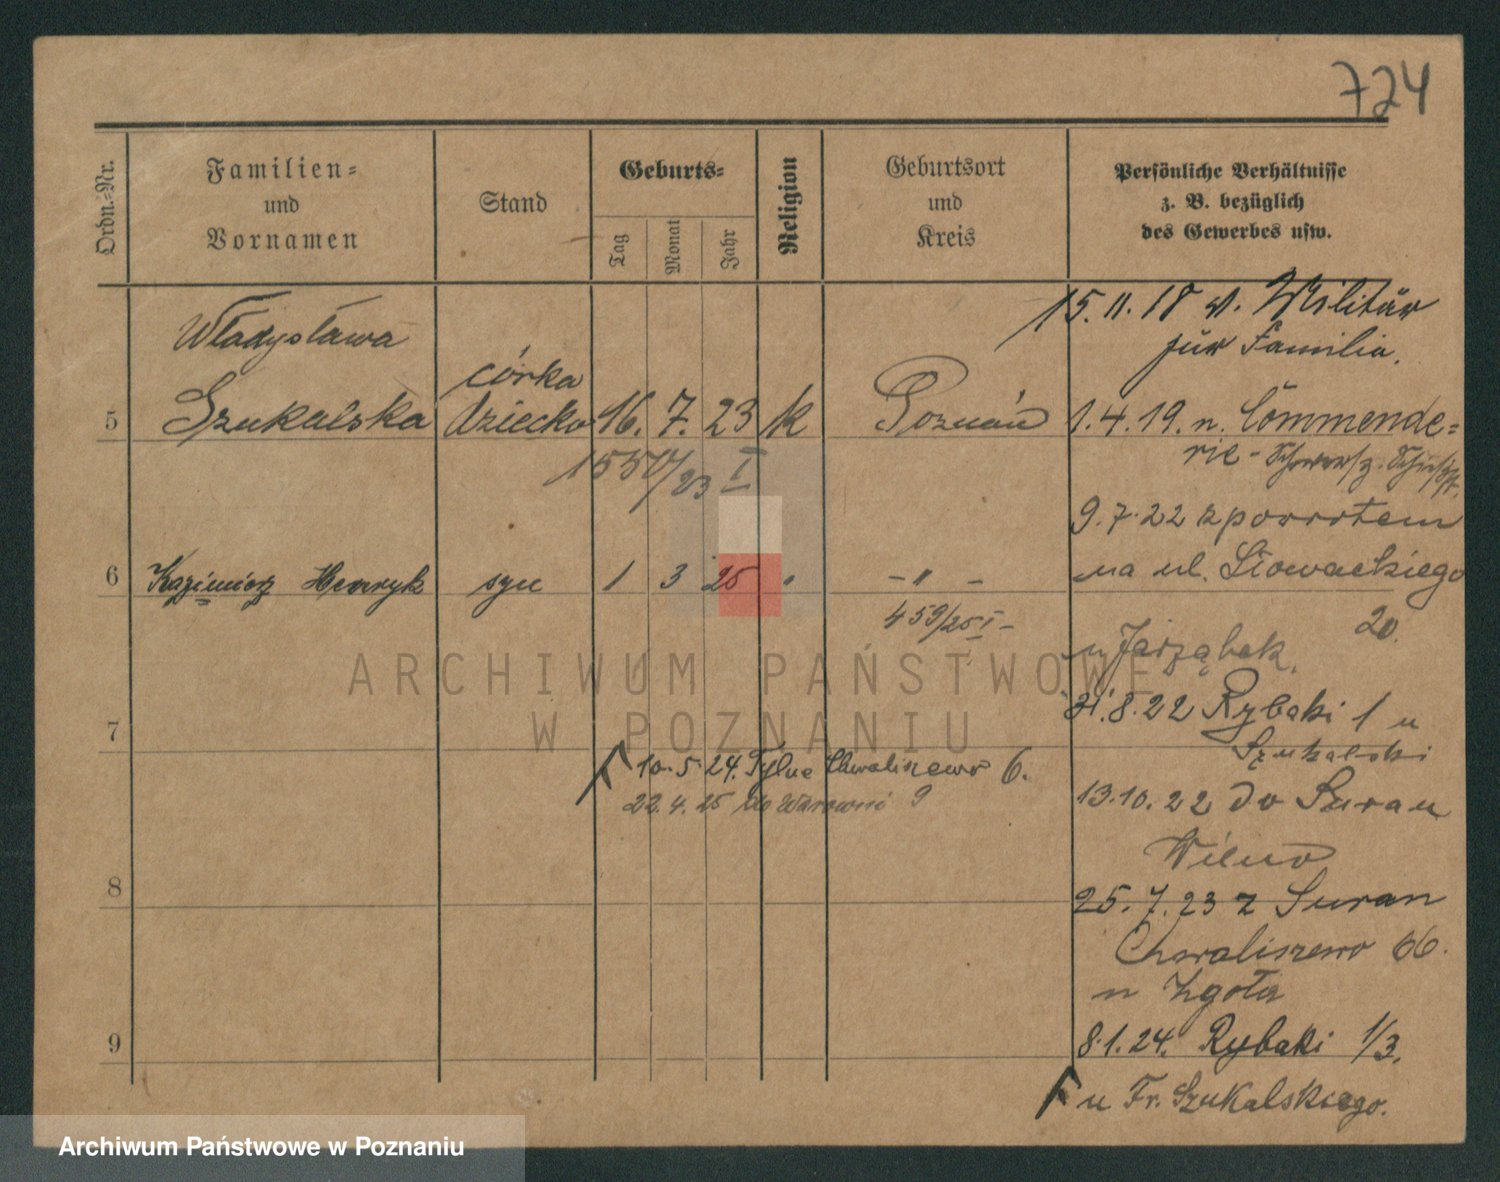 724
Ordn.-Nr.
Familien-
und
Vornamen
Stand
Geburts-
Tag
Monat
Jahr
Religion
Geburtsort
und
Kreis
Persönliche Verhältnisse
z. B. bezüglich
des Gewerbes usw.
5
Władysława
Szukalska
córka
dziecko
16. 7. 23
k
Poznań
1550/23 I
6
Kazimierz Henryk
syn
1 3 25 "
- " -
459/25 I -
7
10.5.24. Tylne Chwaliszewo 6.
22.4.25 Warowni 9
8
9
15.11.18 v. Militär
zur Familia.
1.4.19. n. Commende-
rie-
9.7.22 z powrotem
na ul. Słowackiego
20.
u Jarząbek.
31.8.22 Rybaki 1 u
Szukalski
13.10.22 do
Wilno
25.7.23 z
Chwaliszewo 66.
u Zgoła
8.1.24. Rybaki 1/3.
u Fr. Szukalskiego.
ARCHIWUM PAŃSTWOWE
W POZNANIU
Archiwum Państwowe w Poznaniu